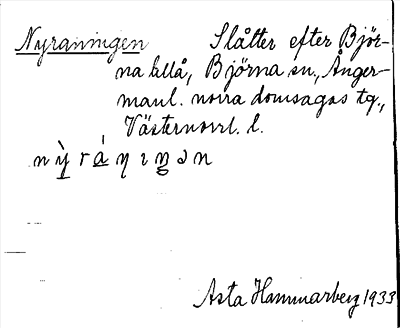 Nyranningen Slåtter efter Björ-
na kllå, Björna sn., Ånger-
manl. norra domsagas tg.,
Västernorrl. l.
nỳ̠rá̠ŋɪŋ̠ən
Asta Hammarberg 1933